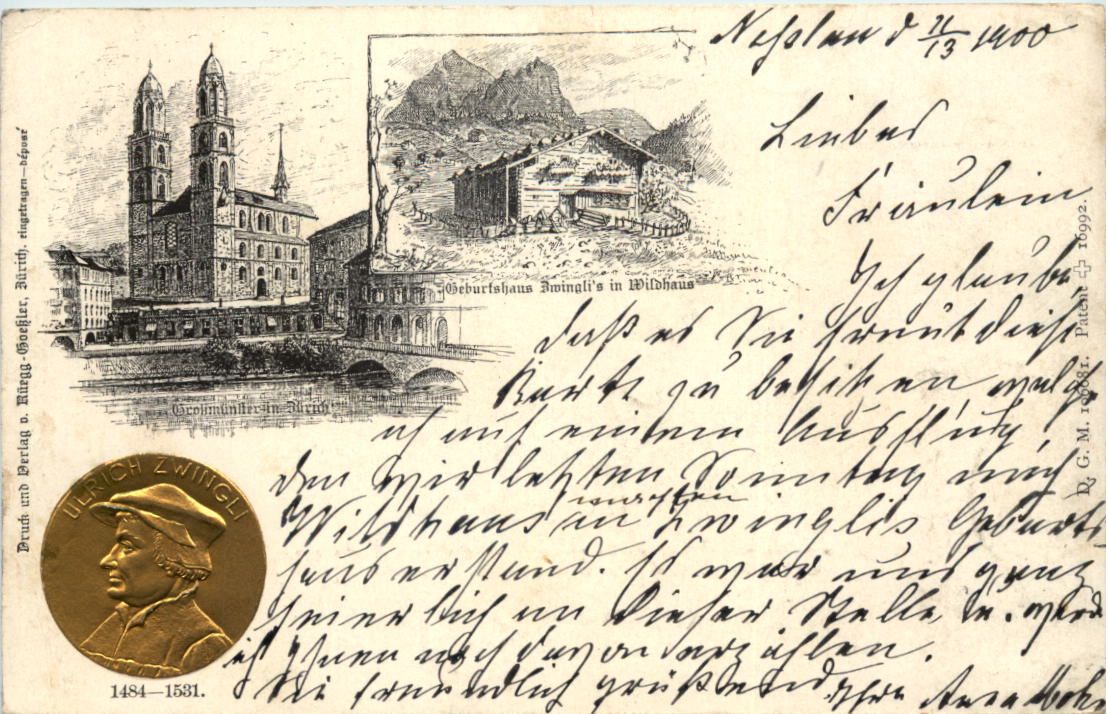 Neßlau d 11/13 1900
Liebes
Fräulein
Ich glaube
daß es Sie freut diese
Karte zu besitzen welche
ich auf einem Ausflug,
den wir letzten Sonntag nach
Wildhaus machten in Zwinglis Geburts
haus erstand. Es war uns ganz
feierlich an dieser Stelle u. werde
ich Ihnen noch davon erzählen.
Sie freundlich grüßend Ihre Anna
Geburtshaus Zwingli's in Wildhaus
Großmünster in Zürich
ULRICH ZWINGLI
1484—1531.
Druck und Verlag v. Rüegg-Goeßler, Zürich. eingetragen—déposé
D. G. M. Patent 16992.